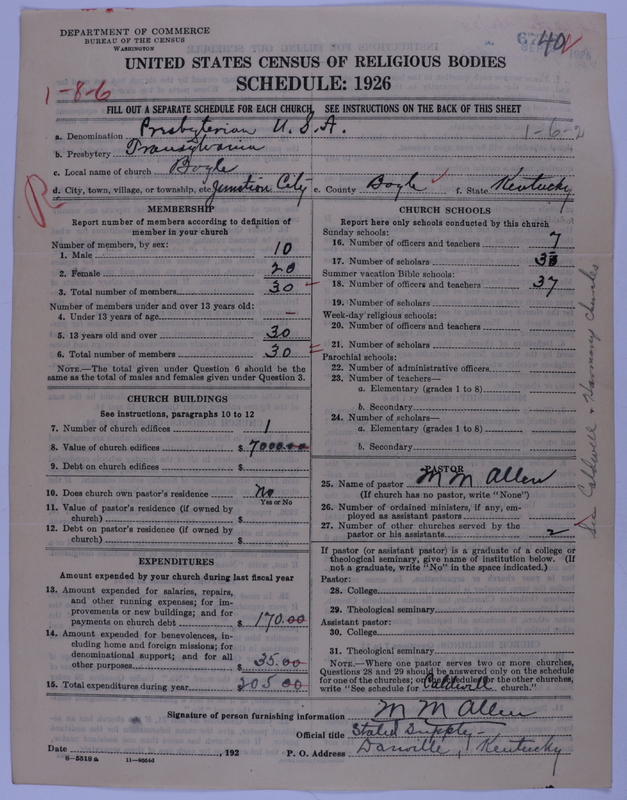 DEPARTMENT OF COMMERCE
BUREAU OF THE CENSUS
WASHINGTON
40
UNITED STATES CENSUS OF RELIGIOUS BODIES
SCHEDULE: 1926
1-8-6
FILL OUT A SEPARATE SCHEDULE FOR EACH CHURCH, SEE INSTRUCTIONS ON THE BACK OF THIS SHEET
a. Denomination Presbyterian U.S.A. 1-6-2
b. Presbytery Transylvania
c. Local name of church Boyle
d. City, town, village, or township, etc Junction City e. County Boyle f. State Kentucky
MEMBERSHIP
Report number of members according to definition of
member in your church
Number of members, by sex:
1. Male 10
2. Female 20
3. Total number of members 30
Number of members under and over 13 years old:
4. Under 13 years of age –
5. 13 years old and over 30
6. Total number of members 30
NOTE.—The total given under Question 6 should be the
same as the total of males and females given under Question 3.
CHURCH BUILDINGS
See instructions, paragraphs 10 to 12
7. Number of church edifices 1
8. Value of church edifices $ 7000.00
9. Debt on church edifices $
10. Does church own pastor's residence No
Yes or No
11. Value of pastor's residence (if owned by
church) $
12. Debt on pastor's residence (if owned by
church) $
EXPENDITURES
Amount expended by your church during last fiscal year
13. Amount expended for salaries, repairs,
and other running expenses; for im-
provements or new buildings; and for
payments on church debt $ 170.00
14. Amount expended for benevolences, in-
cluding home and foreign missions; for
denominational support; and for all
other purposes $ 35.00
15. Total expenditures during year $ 205 00
CHURCH SCHOOLS
Report here only schools conducted by this church
Sunday schools:
16. Number of officers and teachers 7
17. Number of scholars
Summer vacation Bible schools:
18. Number of officers and teachers 37
19. Number of scholars
Week-day religious schools:
20. Number of officers and teachers
21. Number of scholars
Parochial schools:
22. Number of administrative officers
23. Number of teachers—
a. Elementary (grades 1 to 8)
b. Secondary
24. Number of scholars—
a. Elementary (grades 1 to 8)
b. Secondary
See Caldwell & Harmony Churches
PASTOR
25. Name of pastor M M Allen
(If church has no pastor, write "None")
26. Number of ordained ministers, if any, em-
ployed as assistant pastors
27. Number of other churches served by the
pastor or his assistants 2
If pastor (or assistant pastor) is a graduate of a college or
theological seminary, give name of institution below. (If
not a graduate, write "No" in the space indicated.)
Pastor:
28. College
29. Theological seminary
Assistant pastor:
30. College
31. Theological seminary
NOTE.—Where one pastor serves two or more churches,
Questions 28 and 29 should be answered only on the schedule
for one of the churches; on the schedules for the other churches,
write "See schedule for Caldwell church."
Signature of person furnishing information M M Allen
Official title Stated Supply
Date , 192 P. O. Address Danville, Kentucky
8-5518a